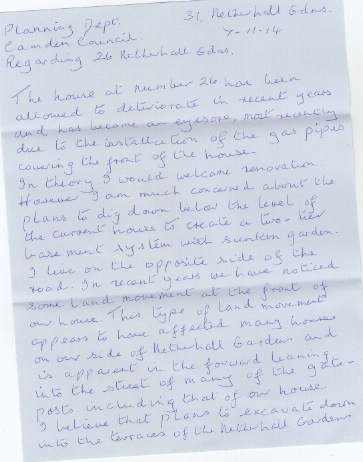 Planning Dept.
Camden Council.
Regarding 26 Netherhall Gdns.
31, Netherhall Gdns.
7-11-14
The house at number 26 has been
allowed to deteriorate in recent years
and has become an eyesore, most recently
due to the installation of the gas pipes
covering the front of the house.
In theory I would welcome renovation.
However I am much concerned about the
plans to dig down below the level of
the current house to create a two-tier
basement system with sunken garden.
I live on the opposite side of the
road. In recent years we have noticed
some land movement at the front of
our house. This type of land movement
appears to have affected many houses
on our side of Netherhall Gardens and
is apparent in the forward leaning
into the street of many of the gate-
posts including that of our house.
I believe that plans to excavate down
into the terraces of the Netherhall Gardens